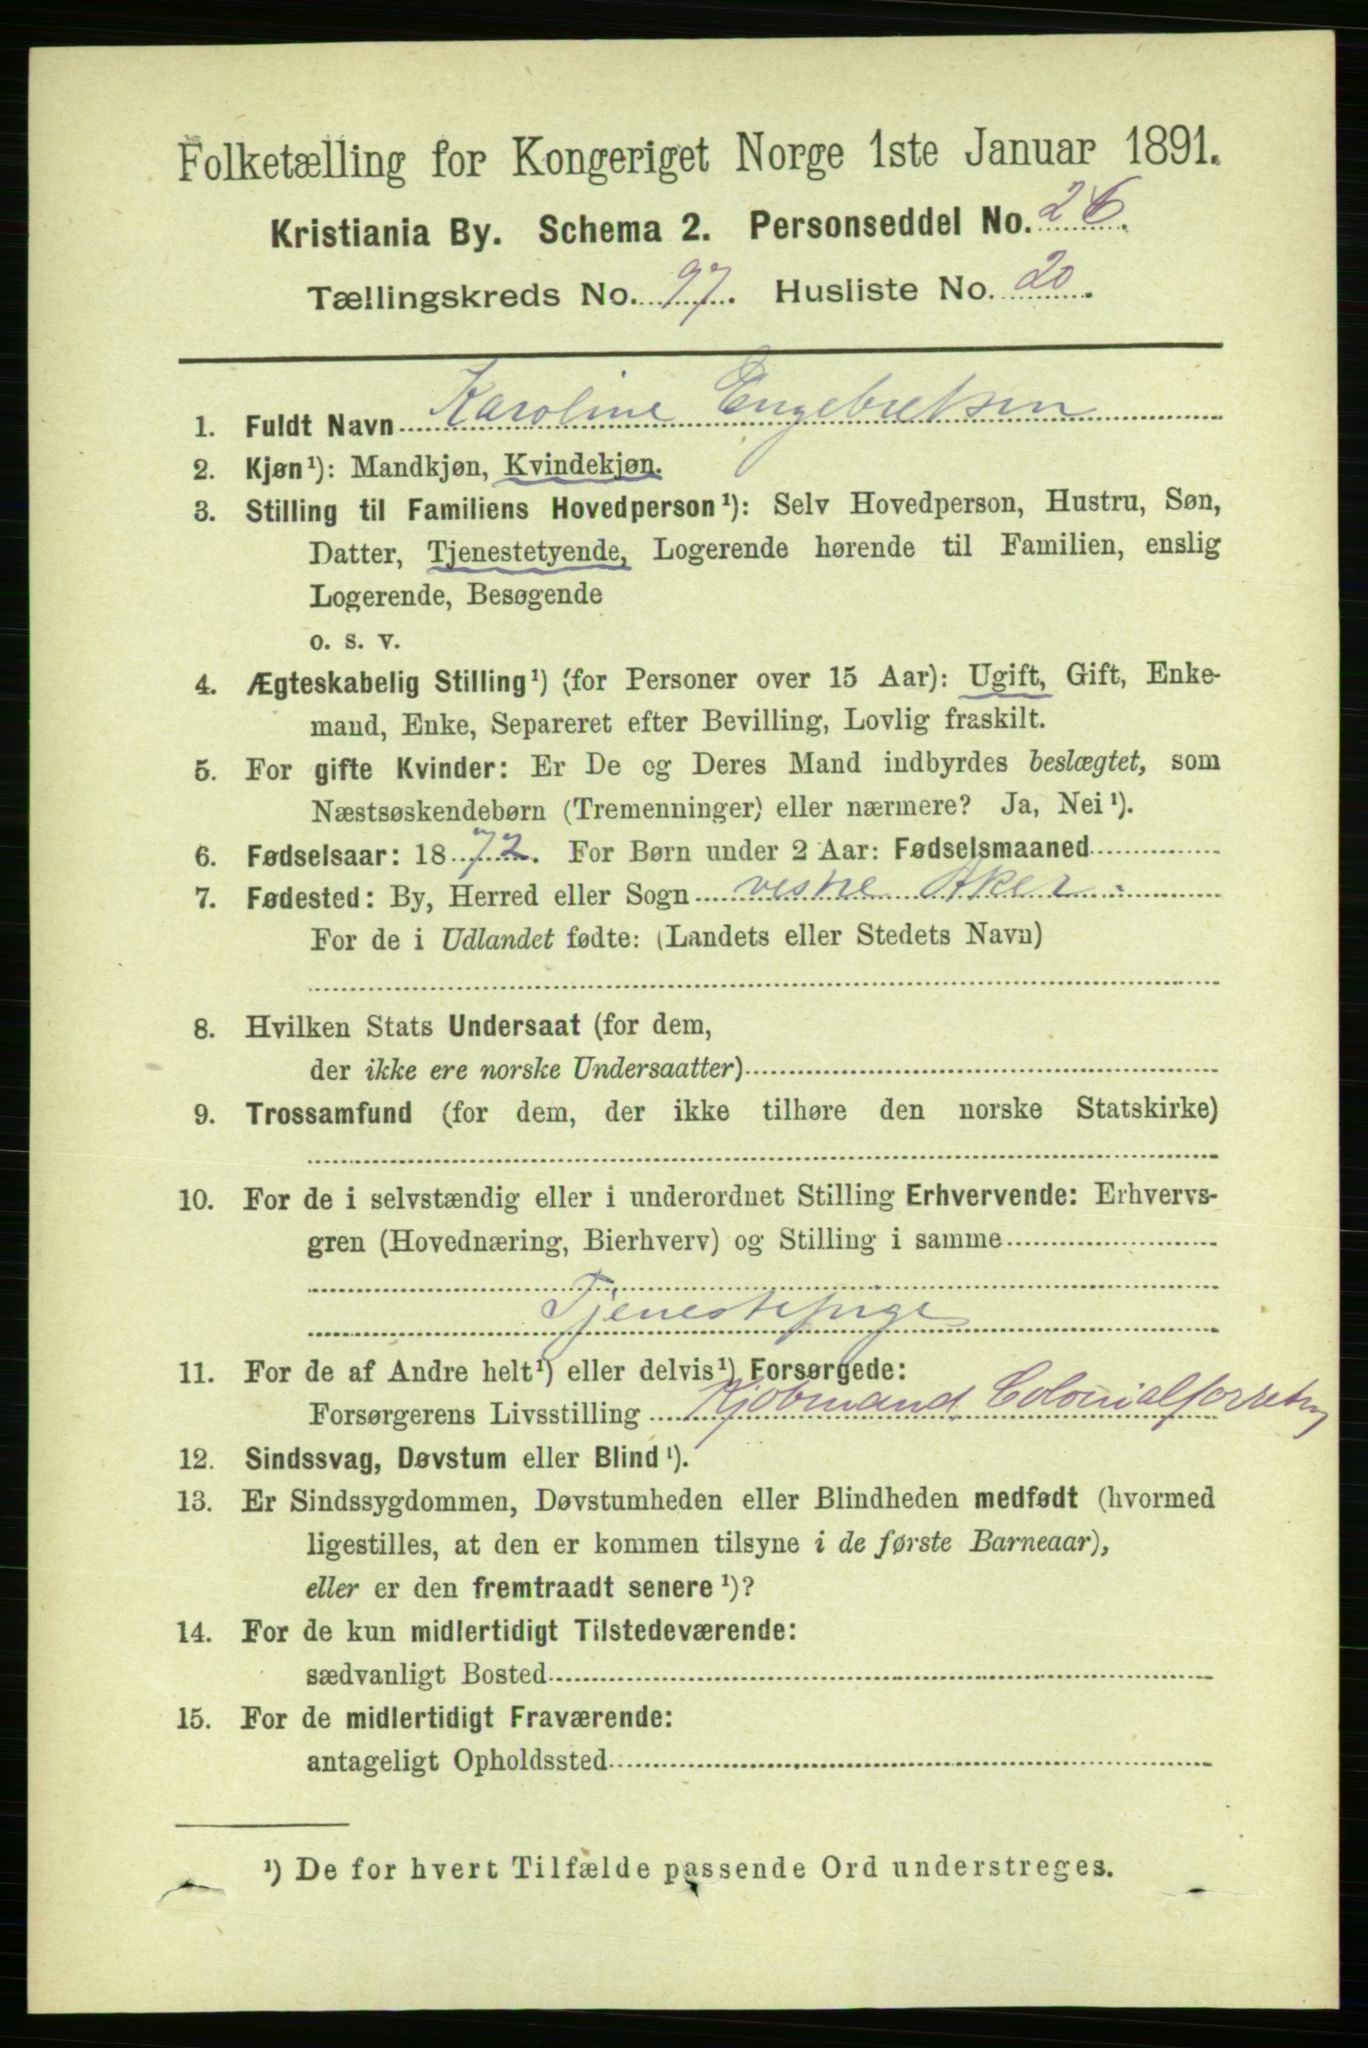 Folketælling for Kongeriget Norge 1ste Januar 1891.
Kristiania By. Schema 2. Personseddel No. 26.
Tællingskreds No. 97. Husliste No. 20.
1. Fuldt Navn Karoline Engebretsen
2. Kjøn¹): Mandkjøn, Kvindekjøn.
3. Stilling til Familiens Hovedperson¹): Selv Hovedperson, Hustru, Søn,
Datter, Tjenestetyende, Logerende hørende til Familien, enslig
Logerende, Besøgende
o. s. v.
4. Ægteskabelig Stilling¹) (for Personer over 15 Aar): Ugift, Gift, Enke-
mand, Enke, Separeret efter Bevilling, Lovlig fraskilt.
5. For gifte Kvinder: Er De og Deres Mand indbyrdes beslægtet, som
Næstsøskendebørn (Tremenninger) eller nærmere? Ja, Nei¹).
6. Fødselsaar: 1872. For Børn under 2 Aar: Fødselsmaaned
7. Fødested: By, Herred eller Sogn vestre Aker.
For de i Udlandet fødte: (Landets eller Stedets Navn)
8. Hvilken Stats Undersaat (for dem,
der ikke ere norske Undersaatter)
9. Trossamfund (for dem, der ikke tilhøre den norske Statskirke)
10. For de i selvstændig eller i underordnet Stilling Erhvervende: Erhvervs-
gren (Hovednæring, Bierhverv) og Stilling i samme
Tjenestepige
11. For de af Andre helt¹) eller delvis¹) Forsørgede:
Forsørgerens Livsstilling Kjøbmand, Colonialforretng
12. Sindssvag, Døvstum eller Blind¹).
13. Er Sindssygdommen, Døvstumheden eller Blindheden medfødt (hvormed
ligestilles, at den er kommen tilsyne i de første Barneaar),
eller er den fremtraadt senere¹)?
14. For de kun midlertidigt Tilstedeværende:
sædvanligt Bosted
15. For de midlertidigt Fraværende:
antageligt Opholdssted
¹) De for hvert Tilfælde passende Ord understreges.